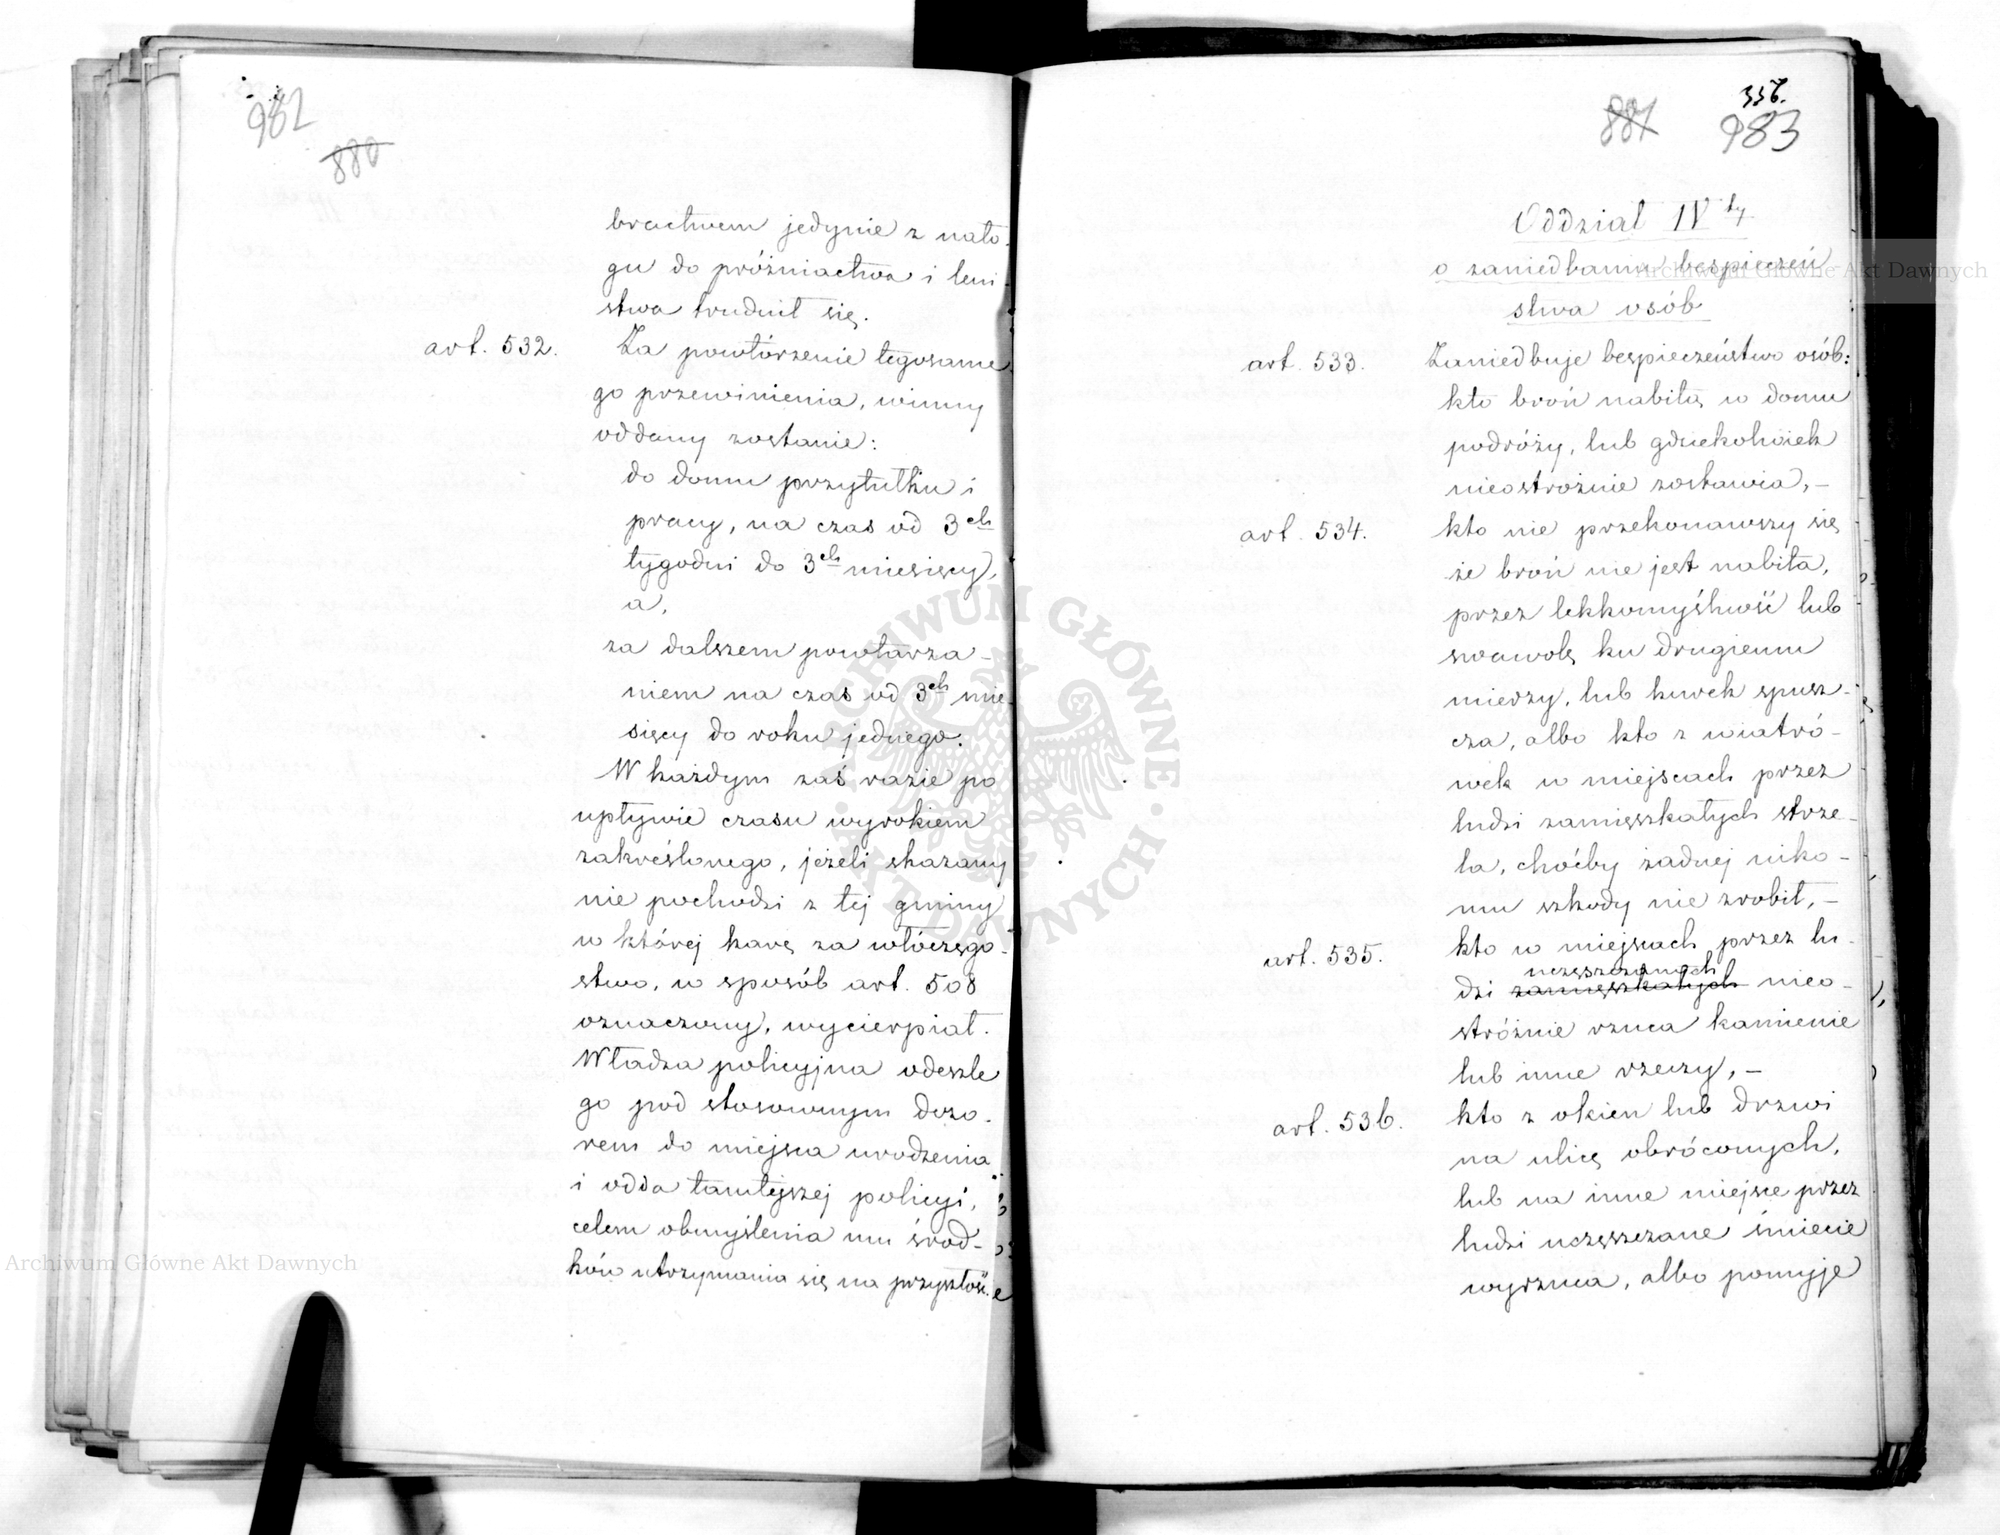 982
880
bractwem jedynie z nało-
gu do próżniactwa i leni-
stwa trudnił się.
art. 532.
Za powtórzenie tegosame-
go przewinienia, winny
oddany zostanie:
do domu przytułku i
pracy, na czas od 3ch
tygodni do 3ch miesięcy,
a,
za dalszem powtarza-
niem na czas od 3ch mie-
sięcy do roku jednego.
W każdym zaś razie po
upływie czasu wyrokiem
zakreślonego, jeżeli skazany
nie pochodzi z tej gminy
w której karę za włóczęgo-
stwo, w sposób art. 508
oznaczony, wycierpiał.
Władza policyjna odeszle
go pod stosownym dozo-
rem do miejsca urodzenia
i odda tamtejszej policyi,
celem obmyślenia mu środ-
ków utrzymania się na przyszłość.
881
336.
983
Oddział IVty
o zaniedbaniu bespieczeń
stwa osób
art. 533.
Zaniedbuje bespieczeństwo osób:
kto broń nabitą w domu
podróży, lub gdziekolwiek
nieostrożnie zostawia, –
art. 534.
kto nie przekonawszy się
że broń nie jest nabita,
przez lekkomyślność lub
swawolę ku drugiemu
mierzy, lub kurek spusz-
cza, albo kto z wiatró-
wek w miejscach przez
ludzi zamięszkałych strze-
la, choćby żadnej niko-
mu szkody nie zrobił, –
art. 535.
kto w miejscach przez lu-
uczęszczanych
dzi zamięszkałych nieo-
stróżnie rzuca kamienie
lub inne rzeczy, –
art. 536.
kto z okien lub drzwi
na ulicę obróconych,
lub na inne miejsce przez
ludzi uczęszczane śmiecie
wyrzuca, albo pomyje
Archiwum Główne Akt Dawnych
Archiwum Główne Akt Dawnych
ARCHIWUM GŁÓWNE · AKT DAWNYCH ·